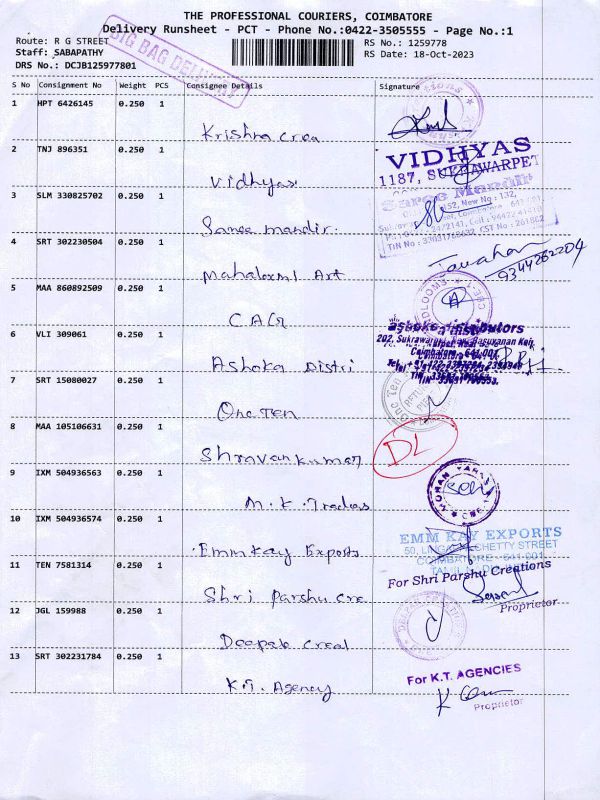 THE PROFESSIONAL COURIERS, COIMBATORE
Delivery Runsheet - PCT - Phone No.:0422-3505555 - Page No.:1
Route: R G STREET
RS No.: 1259778
Staff: SABAPATHY
RS Date: 18-Oct-2023
DRS No.: DCJB125977801
BIG BAG DELIVERY
S No Consignment No Weight PCS Consignee Details Signature
1 HPT 6426145 0.250 1
Krishna Crea
2 TNJ 896351 0.250 1
VIDHYAS
1187, SUKRAWARPET
Vidhyas
3 SLM 330825702 0.250 1
Saree Mandir
152, New No: 132,
Saree mandir.
4 SRT 302230504 0.250 1
TIN No : CST No : 261862
9344262204
Mahalaxmi Art
5 MAA 860892509 0.250 1
CACR
6 VLI 309061 0.250 1
202, Sukrawarpet
Coimbatore - 641 001.
Ashoka Distri
7 SRT 15080027 0.250 1
One Ten
One Ten
8 MAA 105106631 0.250 1
DL
Shravan kumar
9 IXM 504936563 0.250 1
M.K. Traders
10 IXM 504936574 0.250 1
EMM KAY EXPORTS
50, CHETTY STREET
COIMBATORE - 641 001
Emmkay Exports.
11 TEN 7581314 0.250 1
For Shri Parshu Creations
Proprietor
Shri Parshu Cre
12 JGL 159988 0.250 1
Deepak Creal
13 SRT 302231784 0.250 1
For K.T. AGENCIES
K.T. Agency
Proprietor